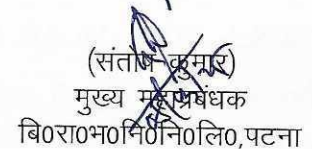 (संतोष कुमार)
मुख्य महाप्रबंधक
बि0रा0भ0नि0नि0लि0,पटना